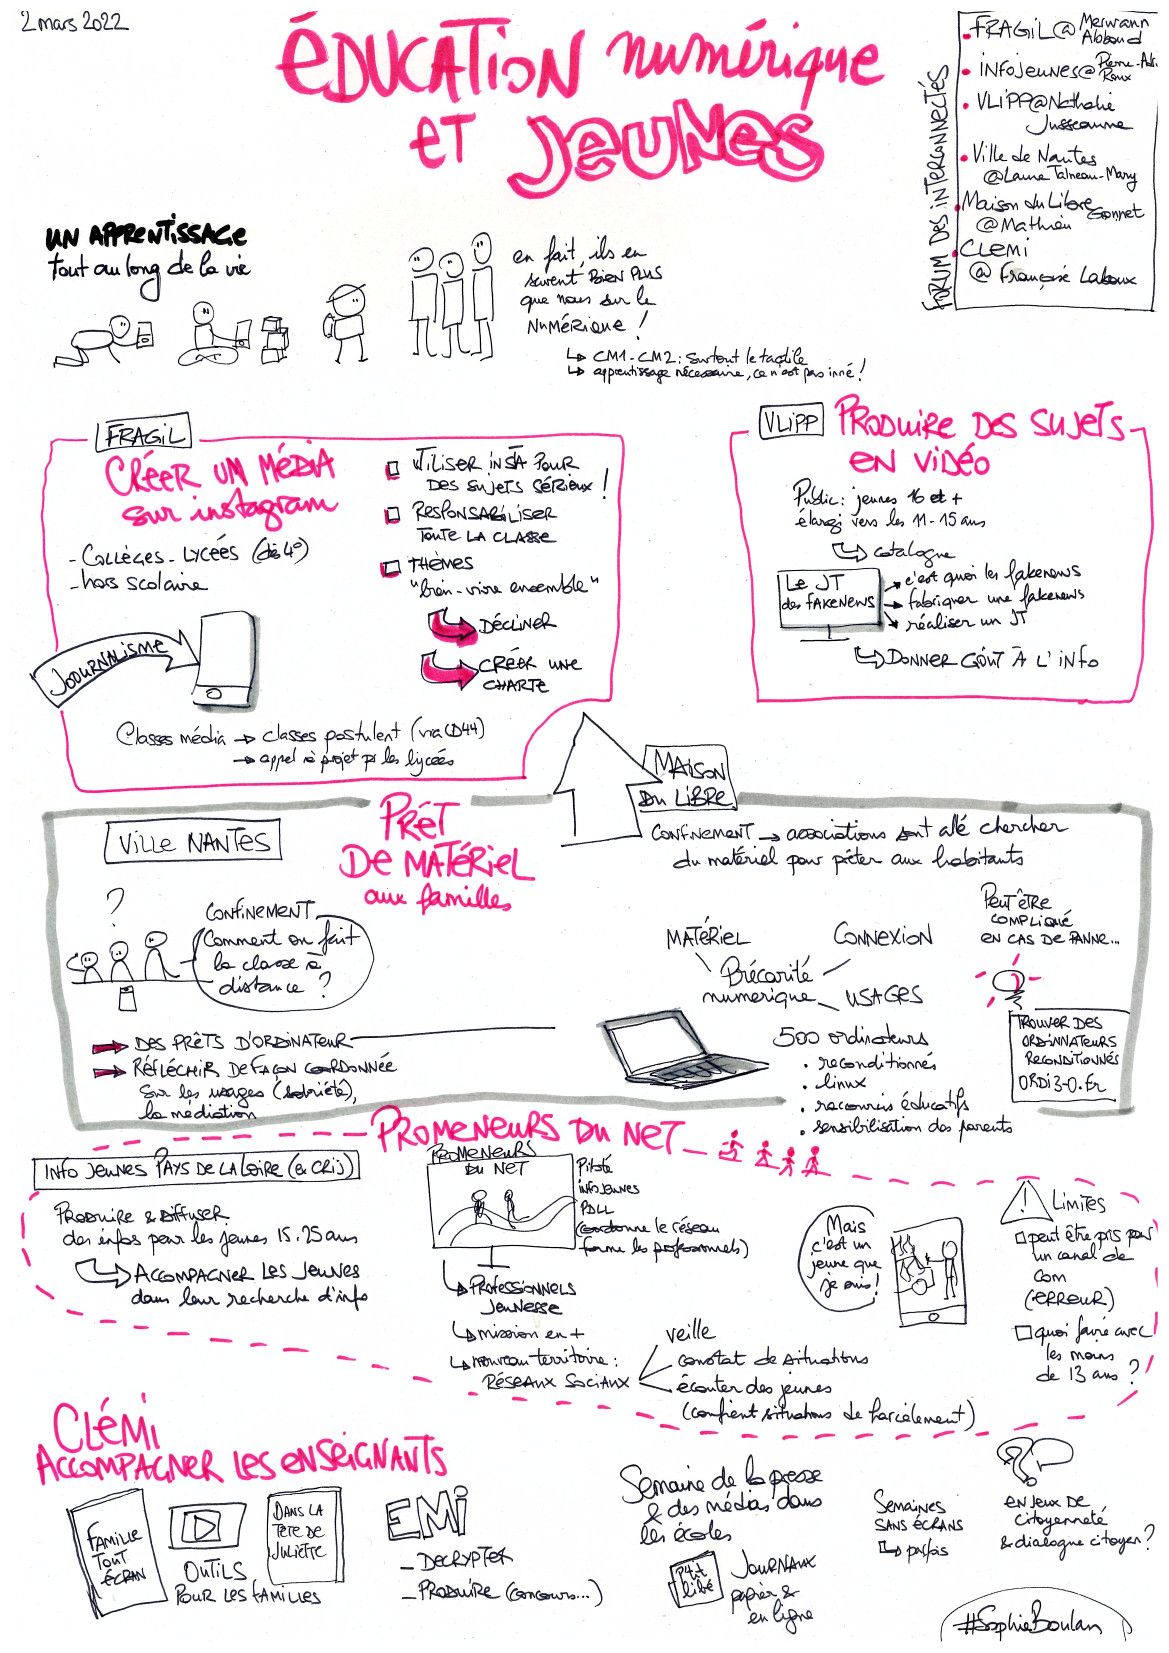 2 mars 2022
ÉDUCATION numérique
ET JEUNES
FORUM DES INTERCONNECTÉS
FRAGIL@ Merwann
Abboud
INFOJEUNES@Pierre-Adr.
Roux
VLIPP@Nathalie
Jusseaume
Ville de Nantes
@Laure Talneau-Mary
Maison du Libre
@Mathieu Gonnet
CLEMI
@ Françoise Laboux
UN APPRENTISSAGE
tout au long de la vie
en fait, ils en
savent BIEN PLUS
que nous sur le
NUMÉRIQUE !
CM1-CM2 : surtout le tactile
apprentissage nécessaire, ce n'est pas inné !
FRAGIL
CRÉER UN MÉDIA
sur instagram
- COLLÈGES - LYCÉES (dès 4e)
- hors scolaire
UTILISER INSTA POUR
DES SUJETS SÉRIEUX !
RESPONSABILISER
TOUTE LA CLASSE
THÈMES
"bien-vivre ensemble"
DÉCLINER
CRÉER UNE
CHARTE
JOURNALISME
Classes média → classes postulent (via CD44)
→ appel à projet pr les lycées
VLIPP
PRODUIRE DES SUJETS
EN VIDÉO
Public : jeunes 16 et +
élargi vers les 11-15 ans
catalogue
Le JT
des FAKENEWS
c'est quoi les fakenews
fabriquer une fakenews
réaliser un JT
DONNER GOÛT À L'INFO
PRÊT
DE MATÉRIEL
aux familles
VILLE NANTES
?
CONFINEMENT
Comment on fait
la classe à
distance ?
DES PRÊTS D'ORDINATEUR
RÉFLÉCHIR DE FAÇON COORDONNÉE
sur les usages (sobriété),
la médiation
MAISON
DU LIBRE
CONFINEMENT → associations sont allé chercher
du matériel pour prêter aux habitants
MATÉRIEL
CONNEXION
Précarité
numérique
USAGES
PEUT ÊTRE
COMPLIQUÉ
EN CAS DE PANNE...
500 ordinateurs
. reconditionnés
. linux
. raccourcis éducatifs
. sensibilisation des parents
TROUVER DES
ORDINNATEURS
RECONDITIONNÉS
ORDI3-0.Fr
PROMENEURS DU NET
INFO JEUNES PAYS DE LA LOIRE (ex CRIJ)
PRODUIRE & diffuser
des infos pour les jeunes 15.25 ans
ACCOMPAGNER LES JEUNES
dans leur recherche d'info
PROMENEURS
DU NET
Piloté
INFOJEUNES
PDLL
(coordonne le réseau
forme les professionnels)
PROFESSIONNELS
JEUNESSE
mission en +
nouveau territoire :
RÉSEAUX SOCIAUX
veille
constat de situations
écouter des jeunes
(confient situations de harcèlement)
Mais
c'est un
jeune que
je suis !
! LIMITES
peut être pris pour
un canal de
com
(ERREUR)
quoi faire avec
les moins
de 13 ans ?
CLÉMI
ACCOMPAGNER LES ENSEIGNANTS
FAMILLE
TOUT
ÉCRAN
DANS LA
TÊTE DE
JULIETTE
OUTILS
POUR LES FAMILLES
EMI
- DECRYPTER
- PRODUIRE (concours...)
Semaine de la presse
& des médias dans
les écoles
P'tit
libé
JOURNAUX
papier &
en ligne
SEMAINES
SANS ÉCRANS
parfois
ENJEUX DE
citoyenneté
& dialogue citoyen ?
#SophieBoulan